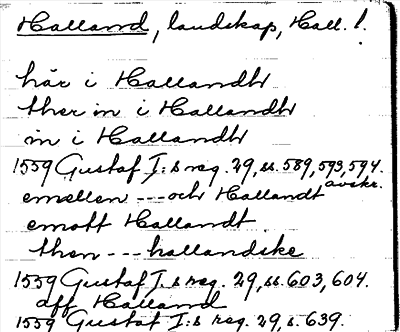 Halland, landskap, Hall. l.
här i Hallandh
ther in i Hallandh
in i Hallandh
1559 Gustaf I:s reg. 29, ss. 589, 593, 594.
avskr.
emellen --- och Hallandt
emott Hallandt
then --- hallandske
1559 Gustaf I:s reg. 29, ss. 603, 604.
aff Halland
1559 Gustaf I:s reg. 29, s. 639.